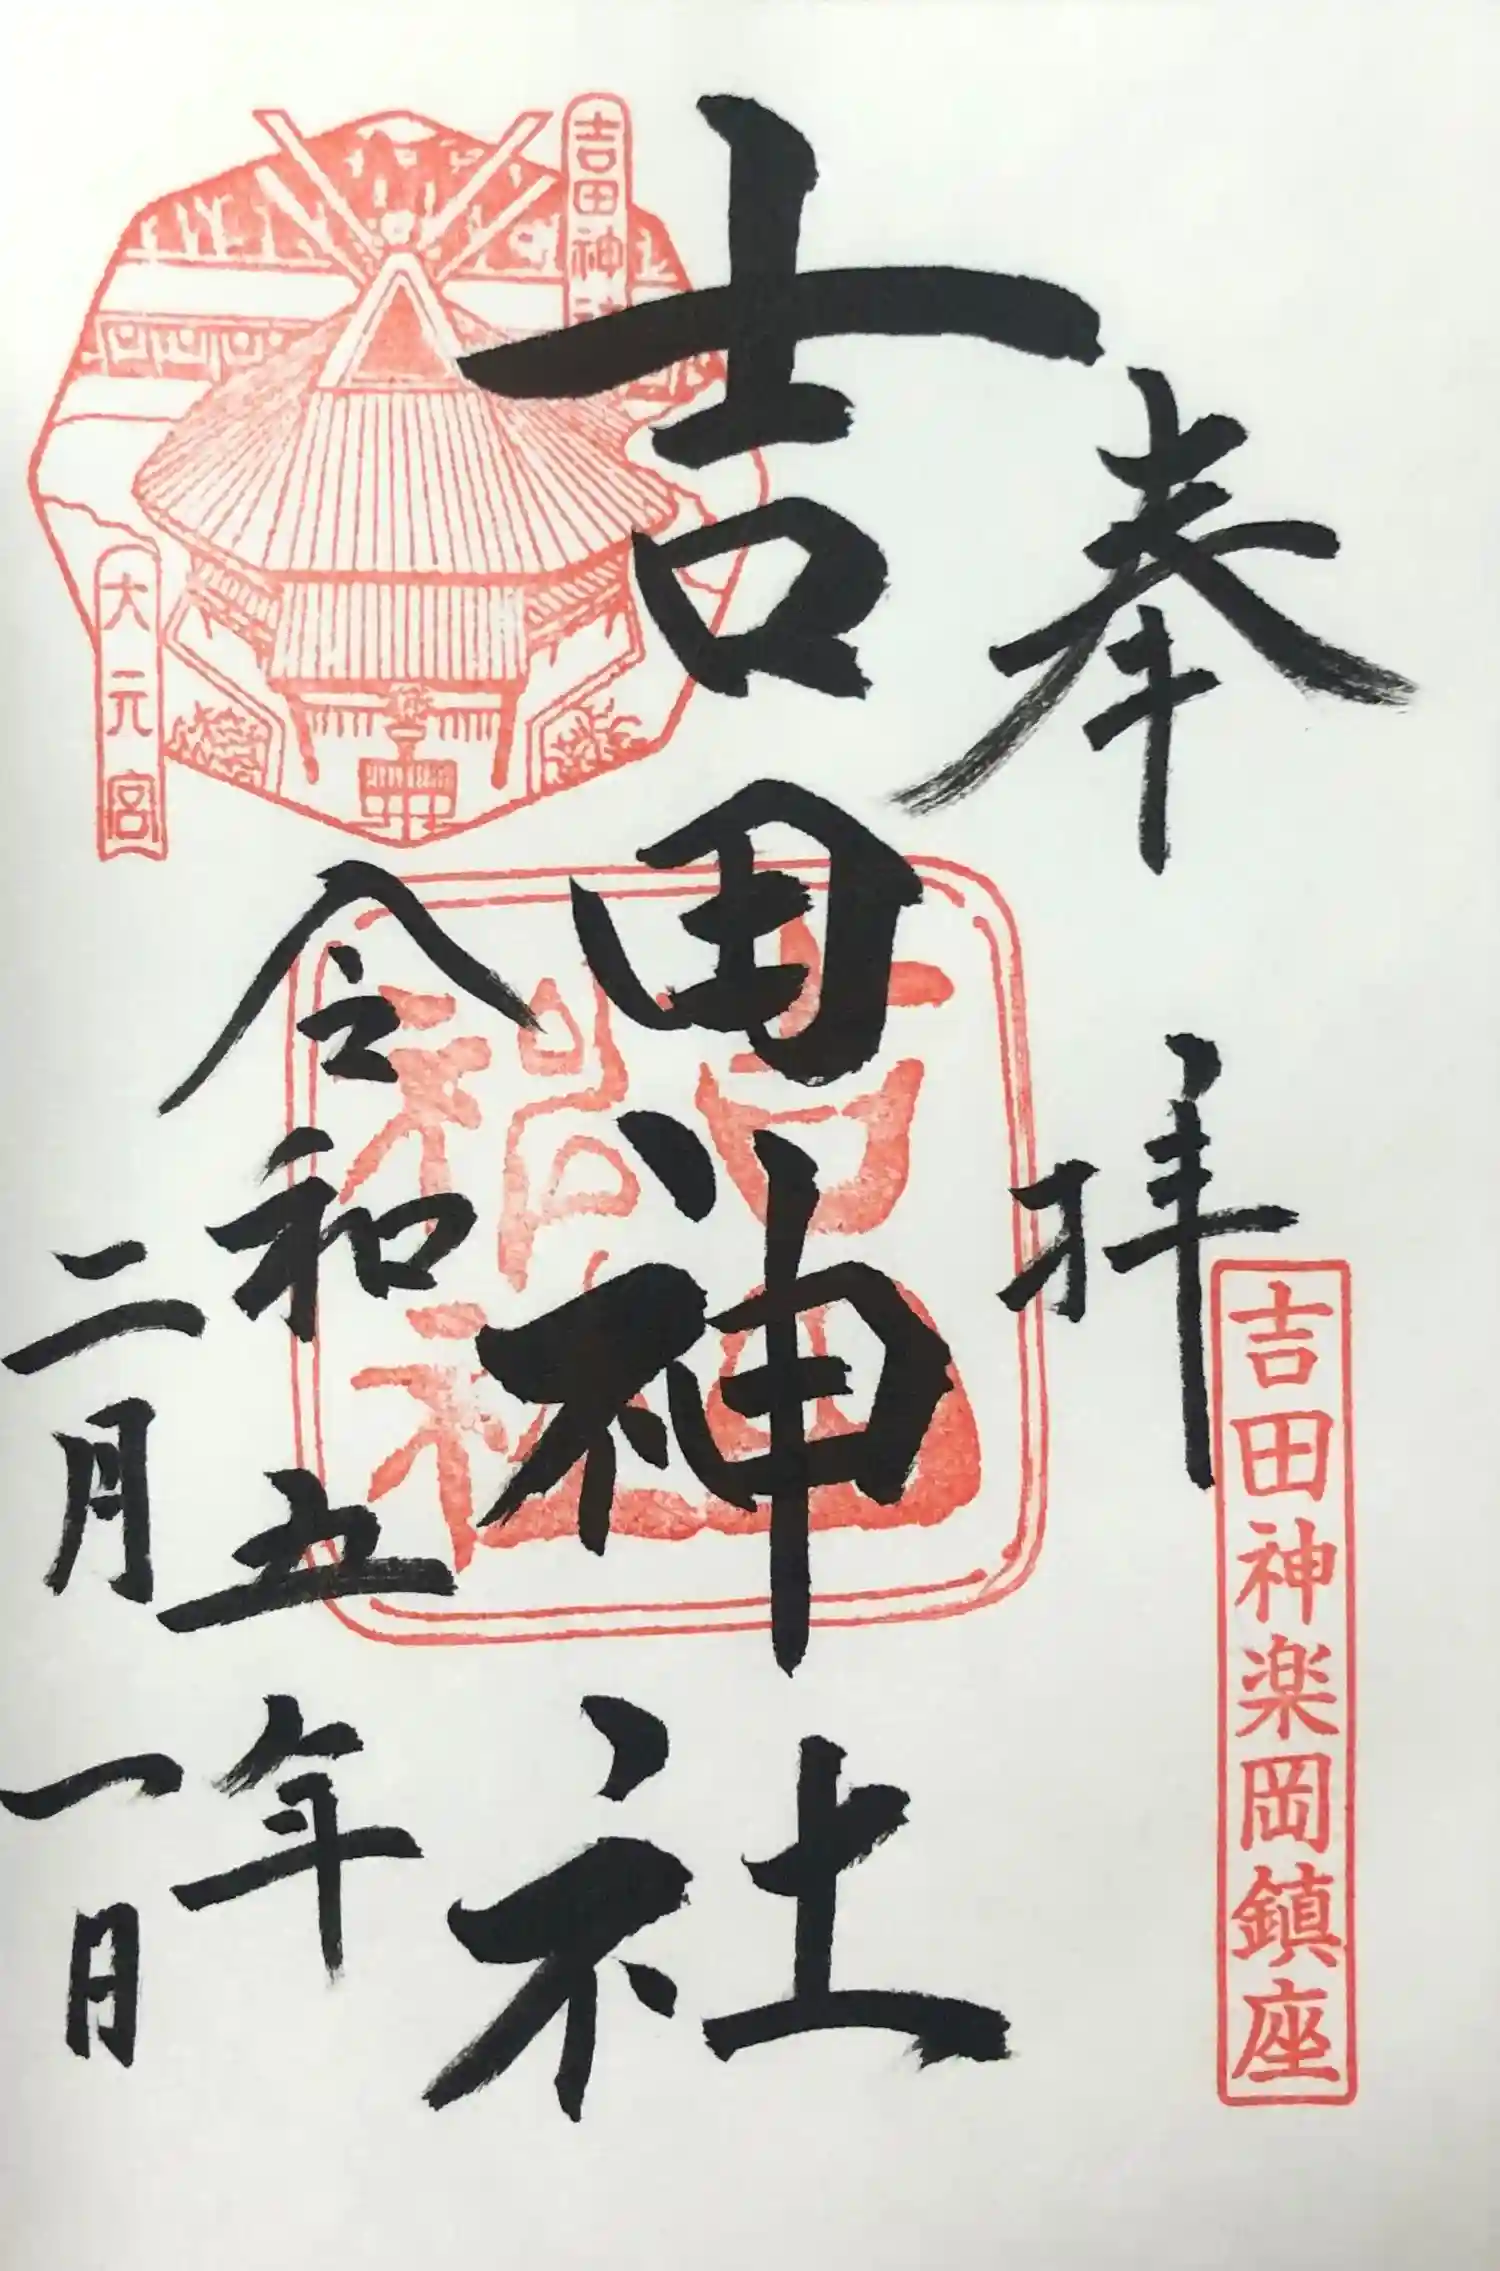 奉拝
吉田神楽岡鎮座
吉田神社
吉田神社
吉田神社
令和五年
二月一日
大元宮